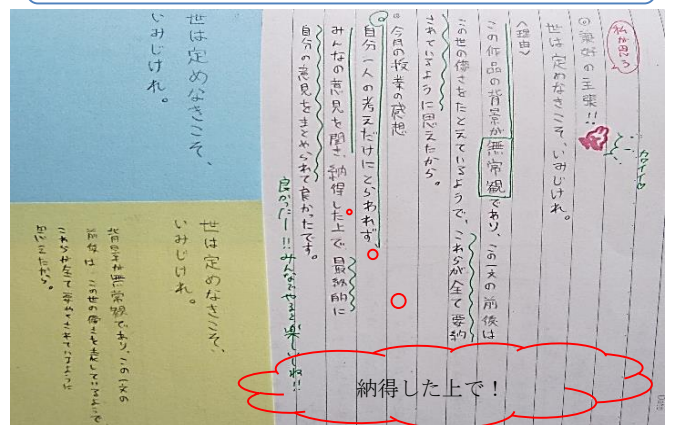 私が思う
◎兼好の主張!!
世は定めなきこそ、いみじけれ。
<理由>
この作品の背景が無常観であり、この一文の前後は
この世の儚さをたとえているようで、これらが全て要約
されているように思えたから。
◎今回の授業の感想
自分一人の考えだけにとらわれず、
みんなの意見を聞き、納得した上で、最終的に
自分の意見をまとめられて良かったです。
良かったー!!みんなでやると楽しいね!!
カワイイ
納得した上で!
Date
世は定めなきこそ、
いみじけれ。
世は定めなきこそ、
いみじけれ。
背景が無常観であり、この一文の
前後は、この世の儚さを表しているようで
これらが全て要約されているように
思えたから。